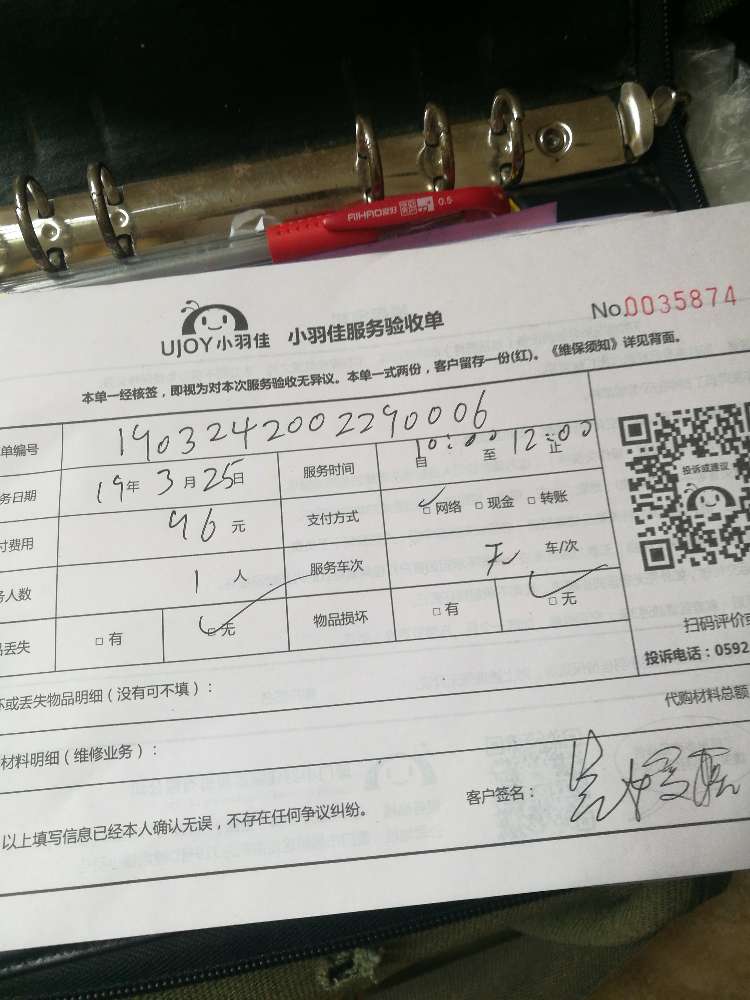 AIHAO 爱好 0.5
No.0035874
UJOY小羽佳 小羽佳服务验收单
本单一经核签，即视为对本次服务验收无异议。本单一式两份，客户留存一份(红)。《维保须知》详见背面。
单编号 1903242002290006
务日期 19年3月25日 服务时间 自10:00至12:00止
付费用 96元 支付方式 □网络 □现金 □转账
务人数 1人 服务车次 无 车/次
品丢失 □有 □无 物品损坏 □有 □无
投诉或建议
扫码评价或
投诉电话：0592
坏或丢失物品明细（没有可不填）：
代购材料总额
材料明细（维修业务）：
以上填写信息已经本人确认无误，不存在任何争议纠纷。
客户签名：